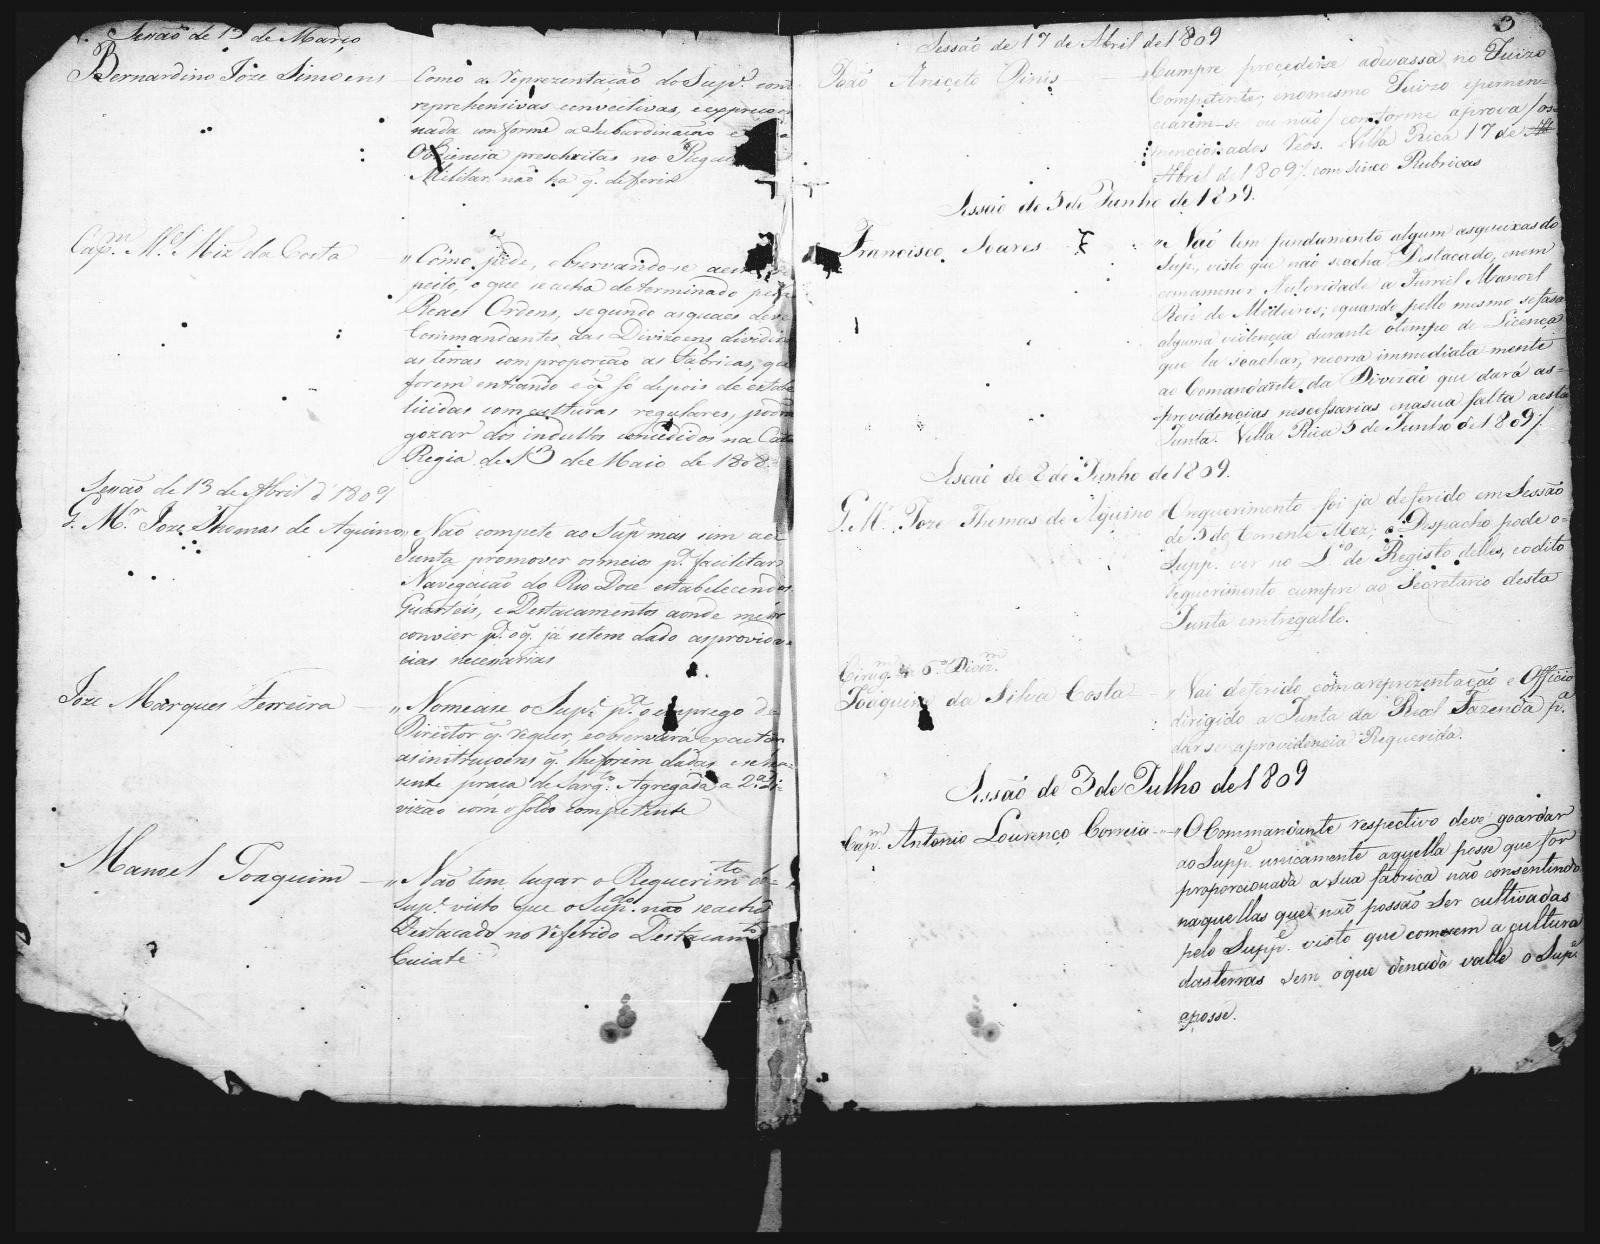 Sessão de 13 de Março
Bernardino Joze Simoens
Como a reprezentação do Supe. com
reprehensivas e envectivas, e
nada conforme a Suburdinação e
Obdiencia preschritas no Regu
Militar, não ha q. deferir
Capm. Mel. Miz da Costa
" Como pede, observando-se
peito, o que se acha determinado pelas
Reaes Ordens, segundo as quaes deve
Commandantes das Divizoens dividir
as terras com proporção as Fabricas, que
forem entrando e q. só depois de estabe
licidas com culturas regulares, podera
gozar dos indultos concedidos na Carta
Regia de 13 de Maio de 1808
Sessão de 13 de Abril d 1809
G. Mr. Joze Thomas de Aquino
" Não compete ao Supe. mas sim a esta
Junta promover os meios pa. facilitar a
Navegação do Rio Doce estabelecendo
Guarteis, e Destacamentos aonde melhor
convier pa. o q. já se tem dado as providen=
cias necessarias
Joze Marques Ferreira
" Nomease o Supe. pa. o emprego de
Director q. requer, e observará exactam
as instruçoens q. lhe forem dadas, e se lhe a=
sente praca de Sargto. Agregado a 2.a Di=
vizão com o soldo competente
Manoel Joaquim
" Não tem lugar o Requerimto. do
Supe. visto que o Supdo. não se acha
Destacado no referido Destacamto.
Cuiaté
3
Sessão de 17 de Abril de 1809
João Aniceto Pinis
" Cumpre procederse a devassa no Juizo
Competente; e no mesmo Juizo
ciarem-se ou não conforme a prova / os=
mencionados Reos. Villa Rica 17 de
Abril de 1809 /. com sinco Rubricas
Sessão de 5 de Junho de 1809.
Francisco Soares
" Não tem fundamento algum as queixas do
Supe., visto que não se acha Destacado, nem
com amenor Autoridade a Furriel Manoel
Roiz de Medeiros; e quando pello mesmo se fasa
alguma violencia durante o tempo de Licença
que la se achar, recorra immediatamente
ao Comandante da Divizão que dará as=
providencias nescessarias e na sua falta a esta
Junta. Villa Rica 5 de Junho de 1809 /.
Seção de 8 de Junho de 1809.
G. Mr. Joze Thomas de Aquino
O requerimento foi ja deferido em Sessão
de 5 do Corrente Mez, e o Despacho pode o=
Suppe. ver no Lo. de Registo delles, e o dito
requerimento cumpre ao Secretario desta
Junta entregallo.
Cirugm. da 6.a Divizm.
Joaquim da Silva Costa
" Vai deferido com a reprezentação e Officio
dirigido a Junta da Real Fazenda pa.
darse a providencia Requerida.
Sessão de 3 de Julho de 1809
Capm. Antonio Lourenço Correia
" O Commandante respectivo deve goardar
ao Suppe. unicamente aquella posse que for
proporcionada a sua fabrica não consentindo
naquellas que não possão ser cultivadas
pelo Suppe. visto que convem a cultura
das terras sem o que de nada valle o Supe.
a posse.